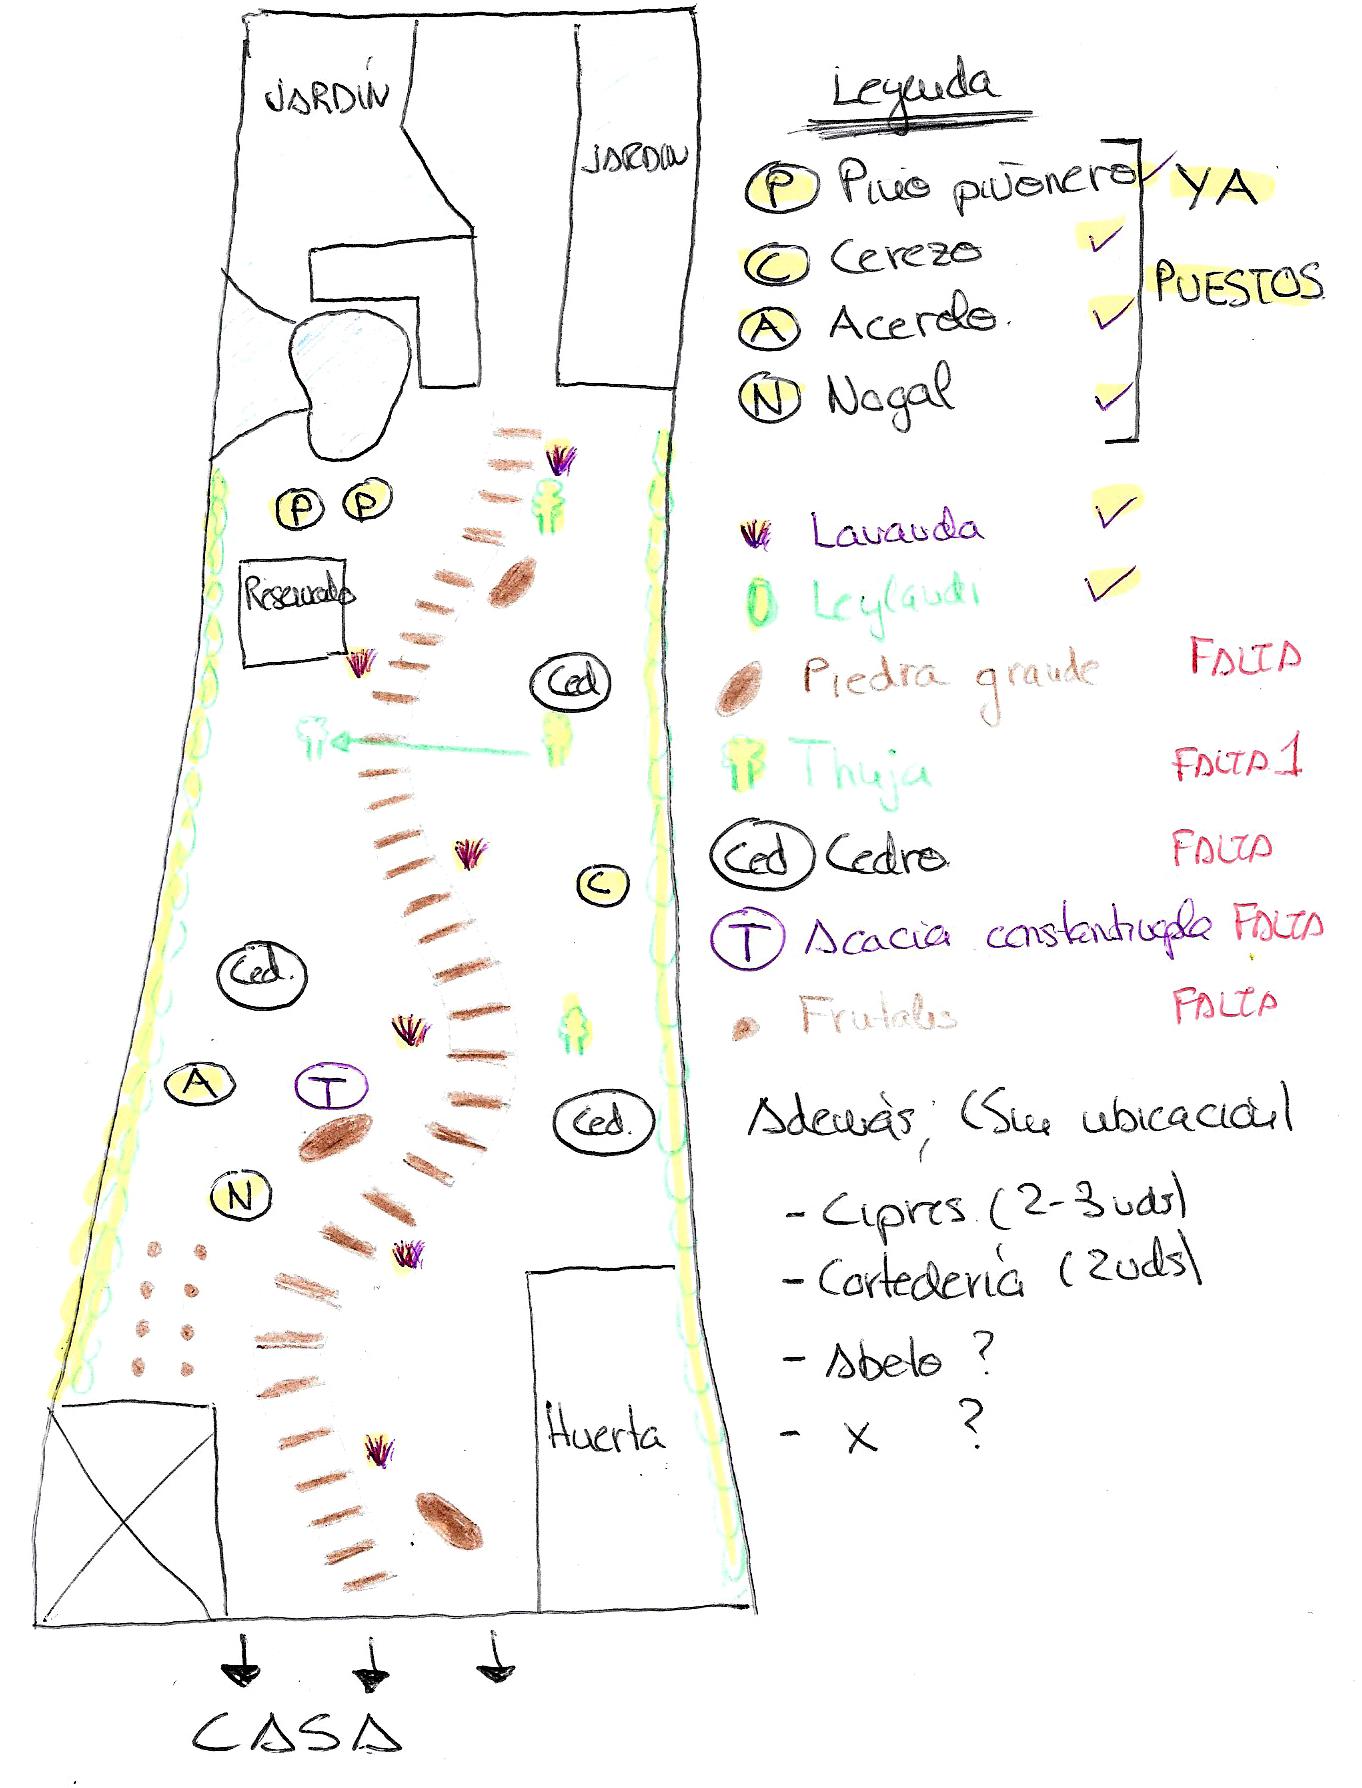 JARDÍN
JARDIN
P P
Reservado
Ced
C
Ced.
A T
Ced.
N
Huerta
CASA
Leyenda
P Pino piñonero YA
C Cerezo PUESTOS
A Acerolo.
N Nogal
Lavanda
Leylandi
Piedra grande FALTA
Thuja FALTA 1
Ced Cedro FALTA
T Acacia constantinopla FALTA
Frutales FALTA
Además; (Sin ubicación)
- Cipres (2-3 uds)
- Cortedería (2 uds)
- Abeto ?
- X ?